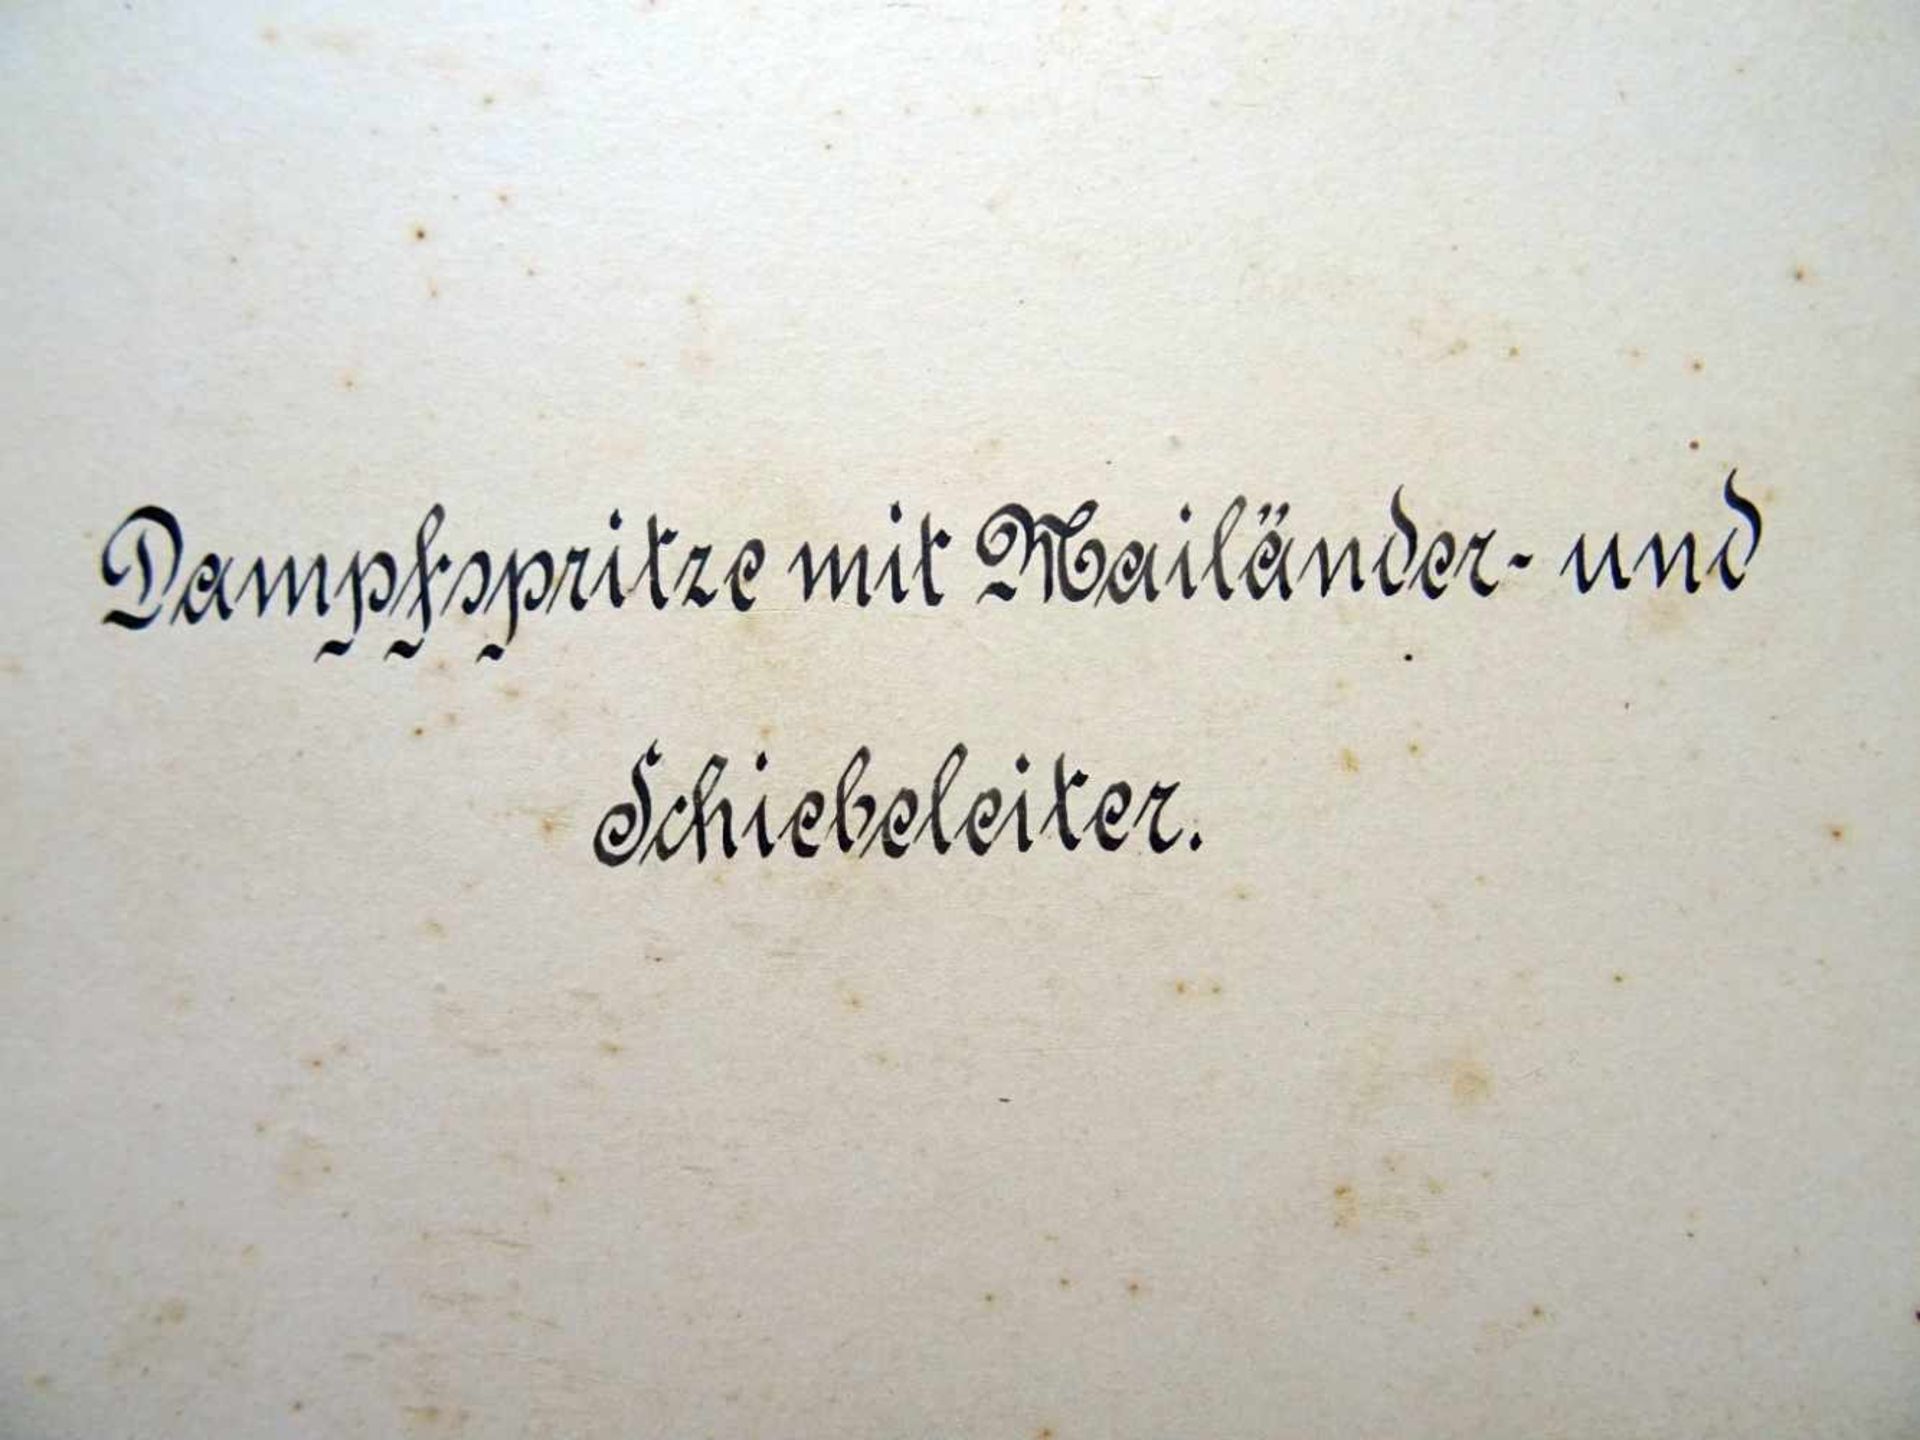 Dampfspritze mit Mailänder- und
Schiebeleiter.